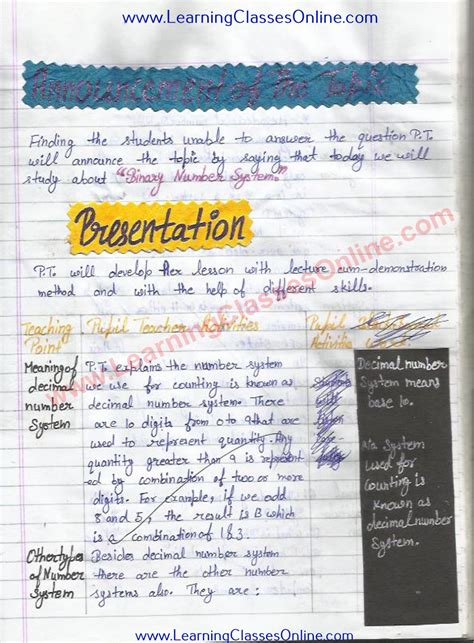 www.LearningClassesOnline.com
Announcement of The Topic
Finding the students unable to answer the question P.T.
will announce the topic by saying that today we will
study about "Binary Number System."
Presentation
P.T. will develop her lesson with lecture cum-demonstration
method and with the help of different skills.
Teaching Point
Pupil Teacher Activities
Pupil Activities
Meaning of
decimal
number
System
P.T. explains the number system
we use for counting is known as
decimal number system. There
are 10 digits from 0 to 9 that are
used to represent quantity. Any
quantity greater than 9 is represent
-ed by combination of two or more
digits. For example, if we add
8 and 5, the result is 13 which
is a combination of 1 & 3.
Decimal number
System means
base 10.
System
used for
counting is
known as
decimal number
System.
Other types
of Number
System
Besides decimal number system
there are the other number
systems also. They are :
www.LearningClassesOnline.com
www.LearningClassesOnline.com